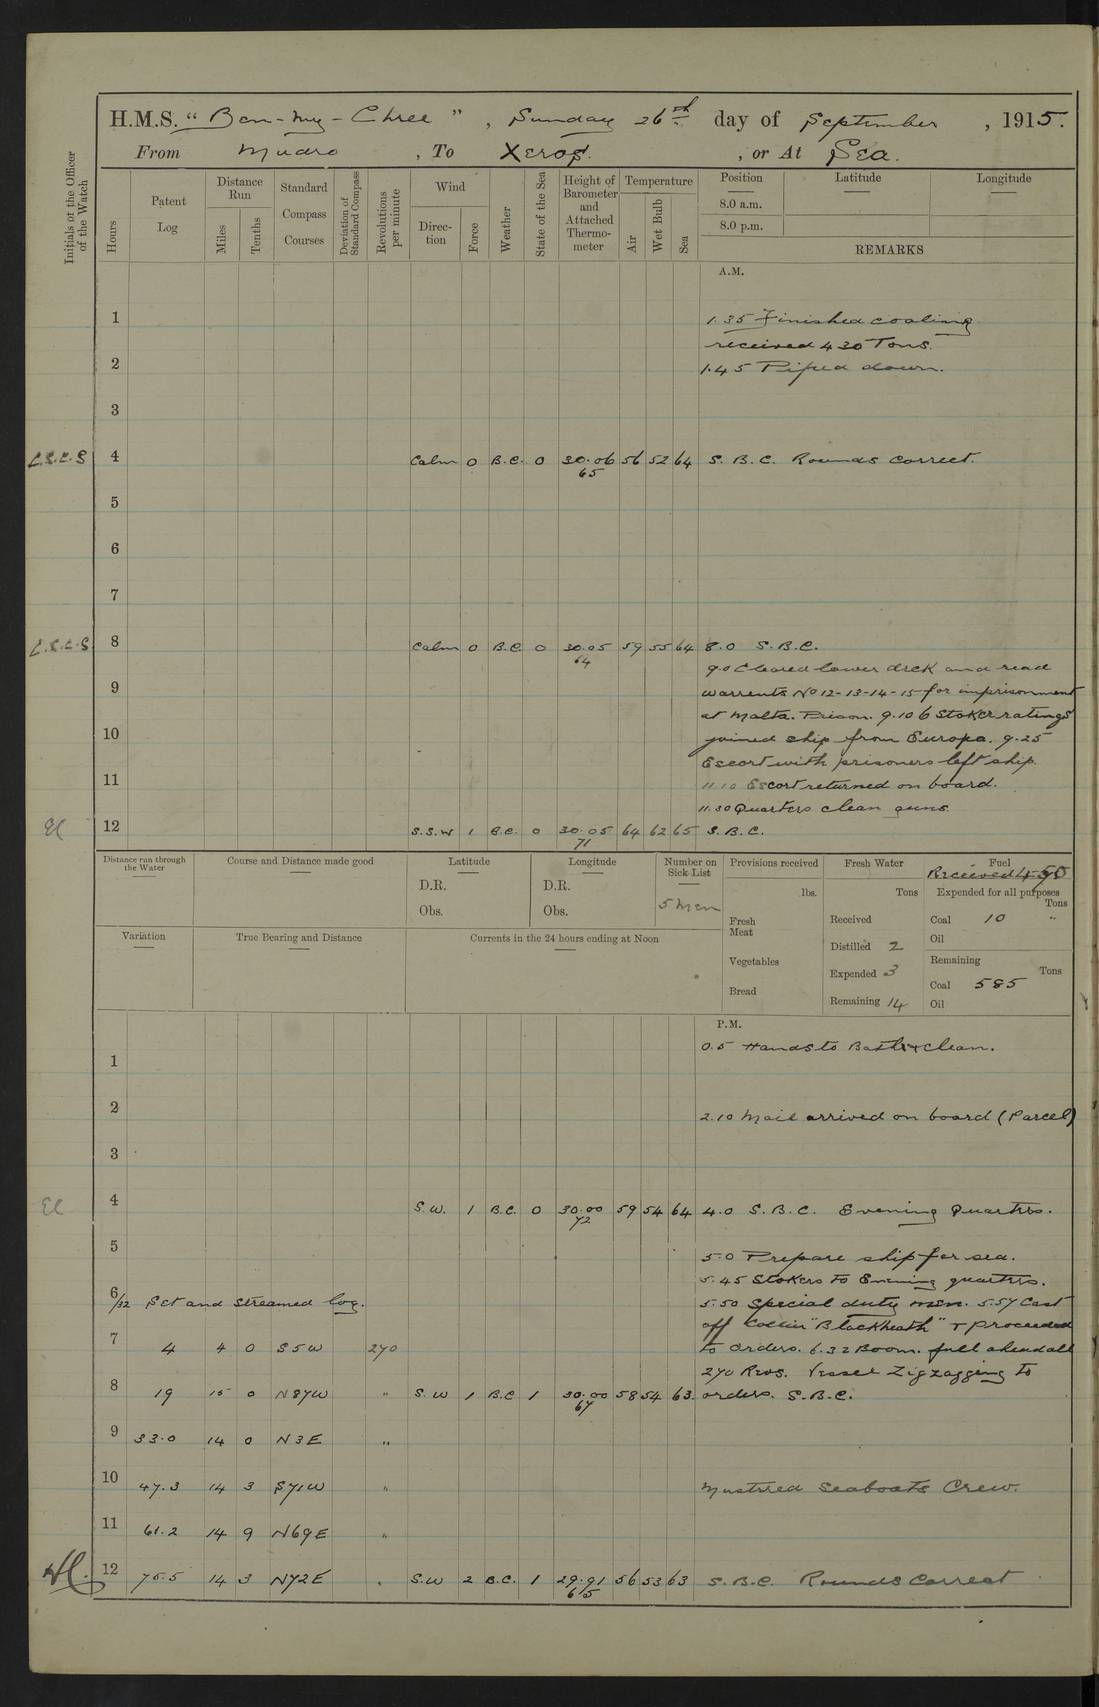 H.M.S. "Ben-my-Chree", Sunday 26th day of September, 1915.
From Mudro, To Xeros, or At Sea.
Initials of the Officer of the Watch
Hours
Patent Log
Distance Run
Miles
Tenths
Standard Compass Courses
Deviation of Standard Compass
Revolutions per minute
Wind
Direction
Force
Weather
State of the Sea
Height of Barometer and Attached Thermometer
Temperature
Air
Wet Bulb
Sea
Position
Latitude
Longitude
8.0 a.m.
8.0 p.m.
REMARKS
A.M.
1 1.35 Finished coaling
received 430 Tons.
2 1.45 Piped down.
3
L.S.C.S 4 Calm 0 B.C. 0 30.06 56 52 64 S.B.C. Rounds correct.
65
5
6
7
L.S.C.S 8 Calm 0 B.C. 0 30.05 59 55 64 8.0 S.B.C.
64
9.0 Cleared lower deck and read
9 warrents No 12-13-14-15 for imprisonment
at Malta. Prison. 9.10 6 Stoker ratings
10 joined ship from Europa. 9.25
Escort with prisoners left ship.
11 11.10 Escort returned on board.
11.30 Quarters clean guns
12 S.S.W 1 B.C. 0 30.05 64 62 65 S.B.C.
71
Distance run through the Water
Course and Distance made good
Latitude
D.R.
Obs.
Longitude
D.R.
Obs.
Number on Sick List
5 men
Provisions received
lbs.
Fresh Meat
Vegetables
Bread
Fresh Water
Tons
Received
Distilled 2
Expended 3
Remaining 14
Fuel
Received
Expended for all purposes
Tons
Coal 10 "
Oil
Remaining
Tons
Coal 585
Oil
Variation
True Bearing and Distance
Currents in the 24 hours ending at Noon
P.M.
0.5 Hands to Bathe & clean.
1
2 2.10 Mail arrived on board (Parcel)
3
4 S.W. 1 B.C. 0 30.00 59 54 64 4.0 S.B.C. Evening Quarters.
72
5 5.0 Prepare ship for sea.
5.45 Stokers to Evening quarters.
6/32 Set and streamed log. 5.50 Special duty men. 5.57 Cast
off Collier "Blackheath" & proceeded
7 4 4 0 S5W 270 to orders. 6.32 Boom. full ahead all
270 Revs. Vessel Zigzagging to
8 19 15 0 N87W " S.W 1 B.C 1 30.00 58 54 63. orders. S.B.C.
67
9 33.0 14 0 N3E "
10 47.3 14 3 S71W " Mustered Seaboats Crew.
11 61.2 14 9 N69E "
12 75.5 14 3 N72E " S.W 2 B.C. 1 29.91 56 53 63 S.B.C. Rounds Correct
65